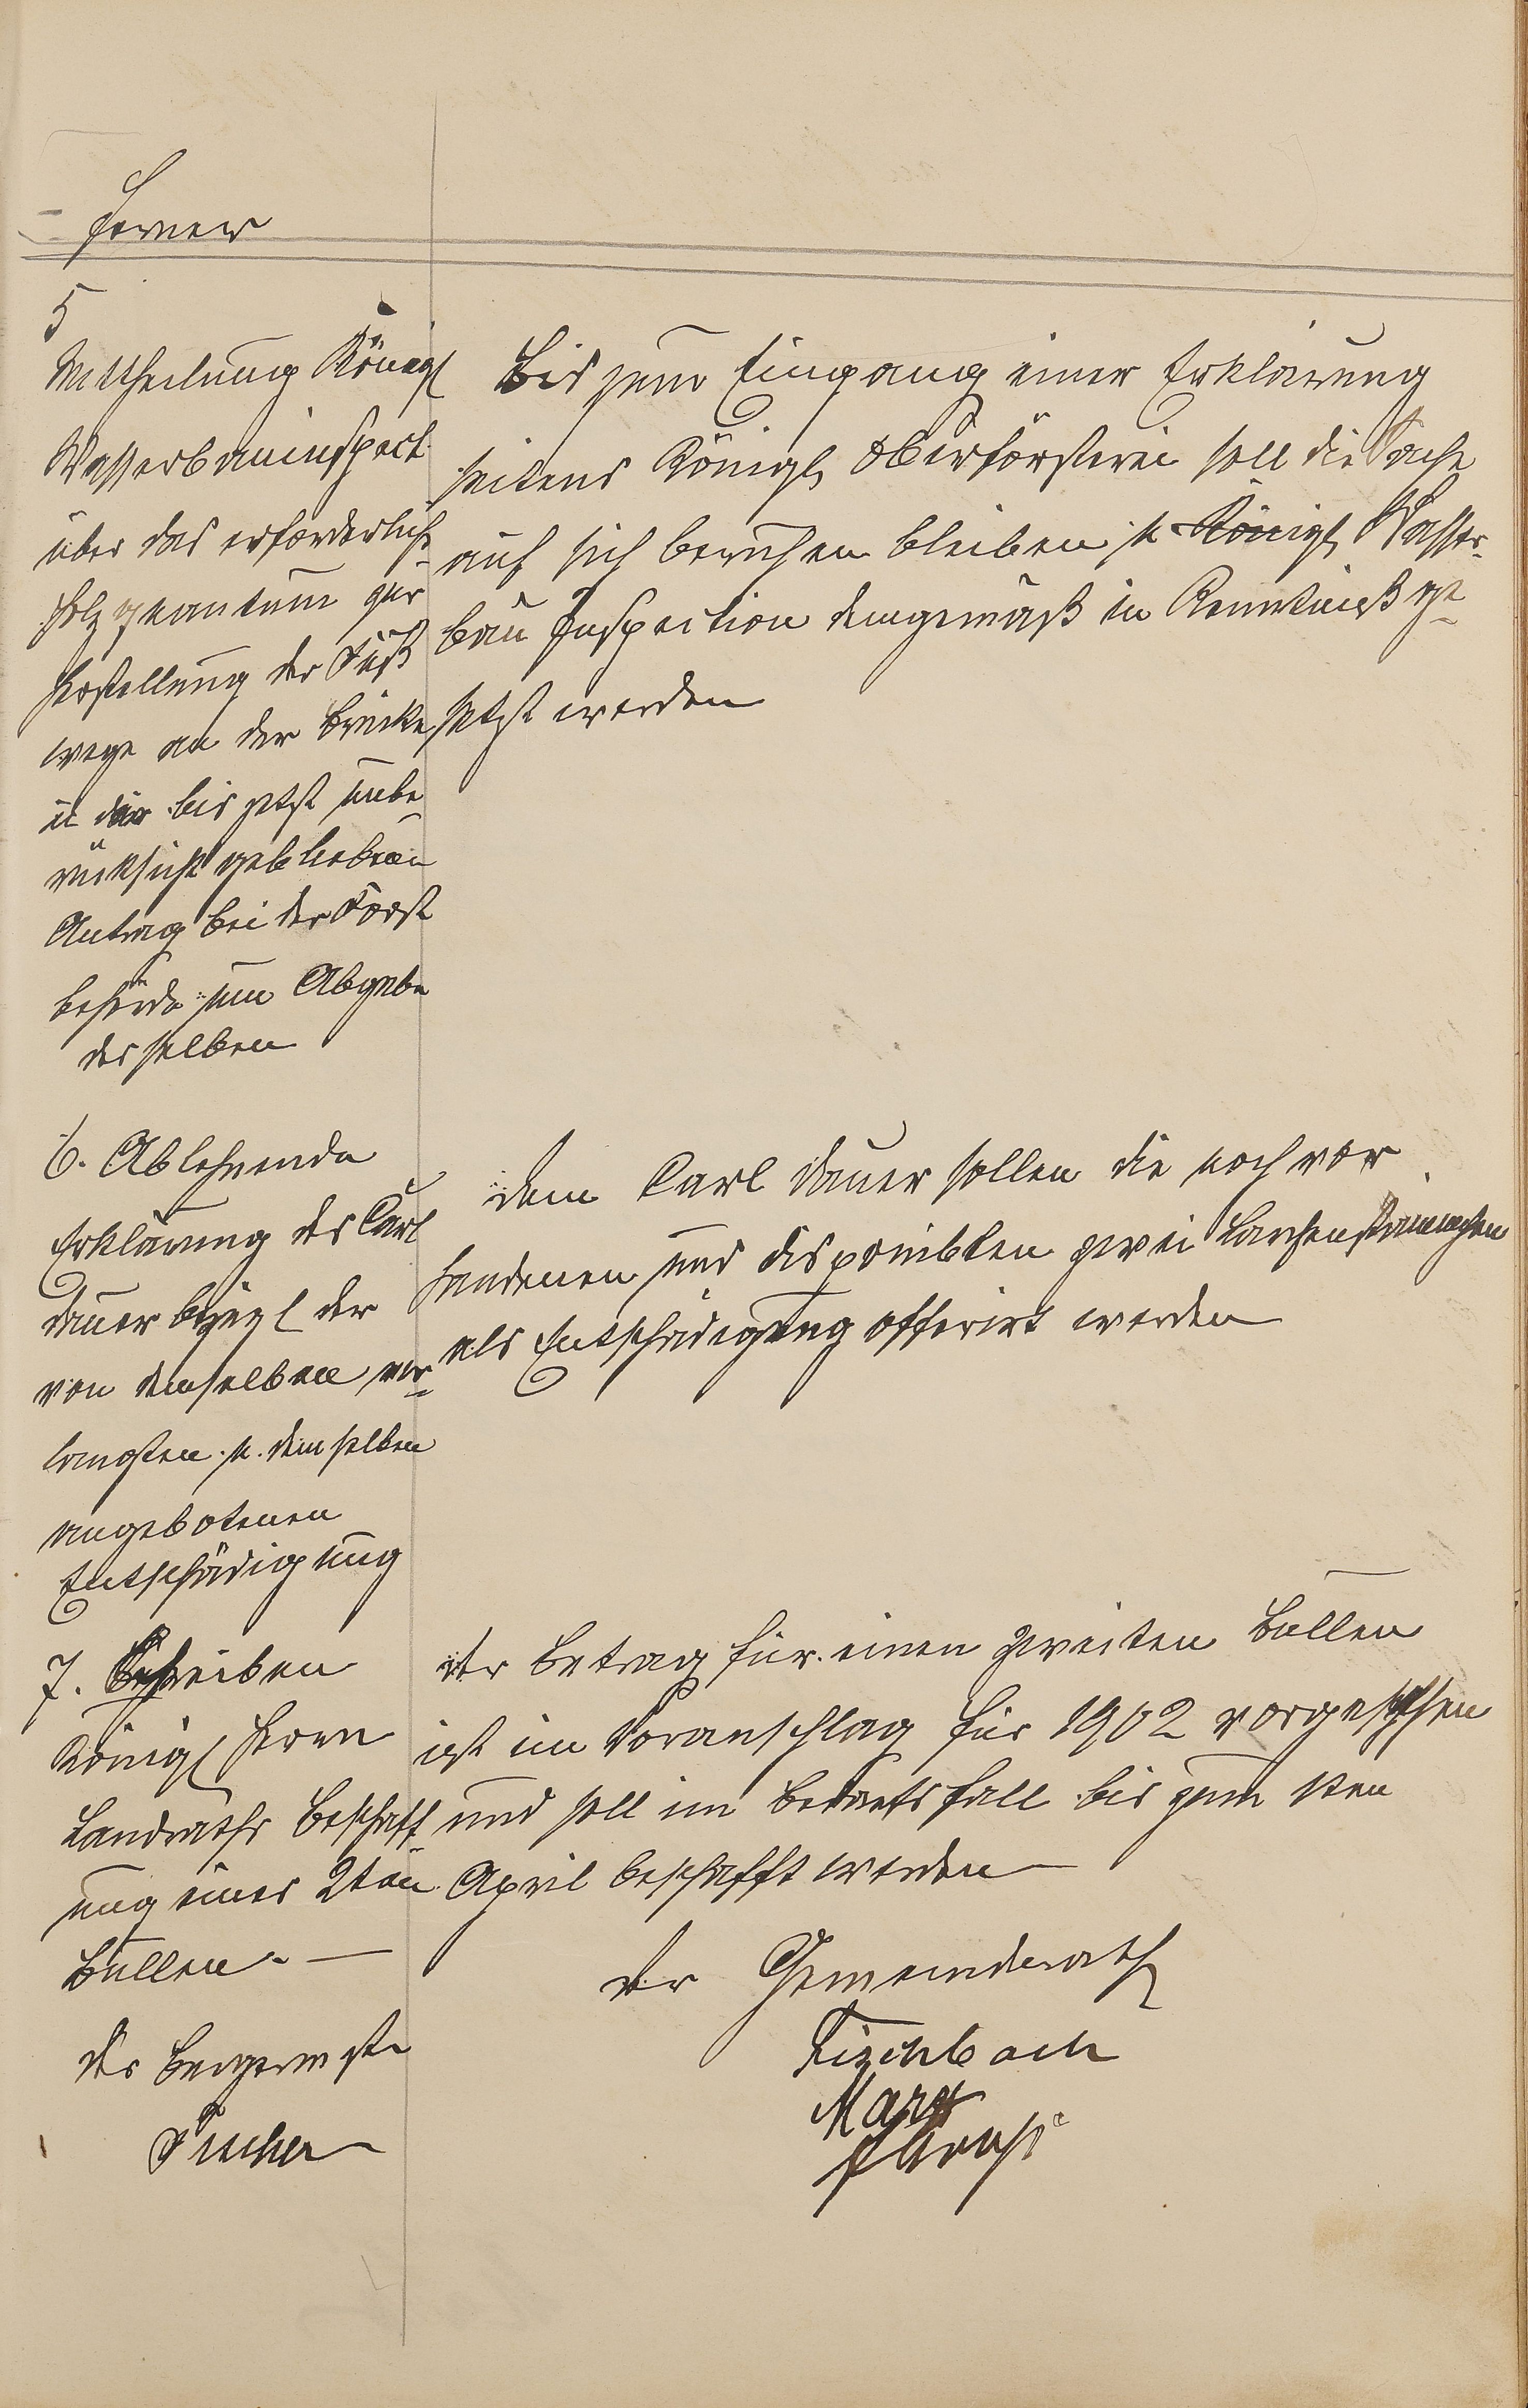 Ferner
5
Mittheilung Königl
Wasserbauinspect.
über das erforderliche
Holzquantum zur
Herstellung der Fuß
wege an der Brücke
u der bis jetzt unbe
rücksicht gebliebenen
Antrag bei der Forst
behörde um Abgabe
desselben
Bis zum Eingang einer Erklärung
seitens Königl Oberförsterei soll die Sache
auf sich beruhen bleiben u Königl Wasser-
bau Inspection demgemäß in Kenntniß ge-
setzt werden
6. Ablehnende
Erklärung des Carl
Dauer bezügl der
von demselben ver-
langten u. demselben
angebotenen
Entschädigung
dem Carl Dauer sollen die noch vor
handenen und disponiblen zwei Lärchenstämmchen
als Entschädigung offerirt werden
7. Schreiben
Königl Herrn
Landraths Beschaff
ung eines 2ten
Bullen. —
der Betrag für einen zweiten Bullen
ist im Voranschlag für 1902 vorgesehen
und soll im Bedarfsfall bis zum 1ten
April beschafft werden
Der Bürgermstr
Fischer
der Gemeinderath
Fischbach
Marx